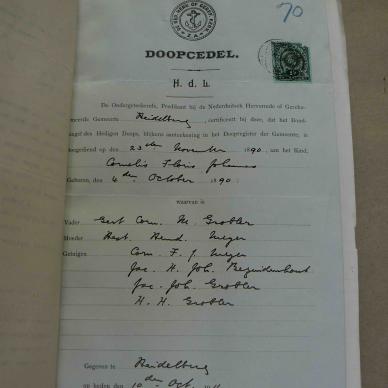 DE NED. HERV. OF GEREF. KERK
Z.A.
70
DOOPCEDEL.
H. d. h.
De Ondergeteekende, Predikant bij de Nederduitsch Hervormde of Gerefor-
meerde Gemeente Heidelburg, certificeert bij deze, dat het Bond-
zegel des Heiligen Doops, blijkens aanteekening in het Doopregister der Gemeente, is
toegediend op den 23sten November 1890, aan het Kind,
Cornelis Floris Johannes
Geboren, den 4den October 1890
waarvan is
Vader Gert Corn. M. Grobler
Moeder Hest. Hend. Meyer
Getuigen Corn. F. J. Meyer
Jac. H. Joh. Bezuidenhout
Jac. Joh. Grobler
H. H. Grobler
Gegeven te Heidelburg
op heden den 10den Oct.